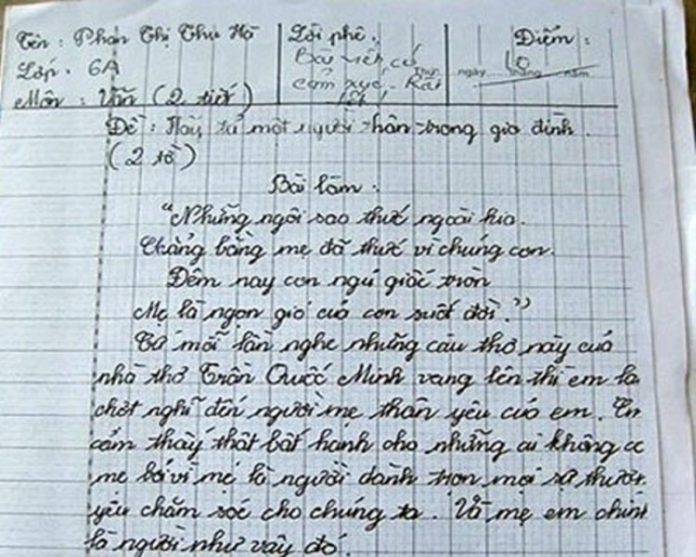 Tên : Phan Thị Thu Hà
Lời phê :
Điểm :
Lớp : 6A
Bài viết có
Thứ ngày.......tháng.......năm.......
10
Môn : Văn (2 tiết)
cảm xúc. Rất
tốt !
Đề : Hãy tả một người thân trong gia đình
(2 tờ)
Bài làm :
"Những ngôi sao thức ngoài kia
Chẳng bằng mẹ đã thức vì chúng con.
Đêm nay con ngủ giấc tròn
Mẹ là ngọn gió của con suốt đời."
Cứ mỗi lần nghe những câu thơ này của
nhà thơ Trần Quốc Minh vang lên thì em lạ
chợt nghĩ đến người mẹ thân yêu của em. Em
cảm thấy thật bất hạnh cho những ai không c
mẹ bởi vì mẹ là người dành trọn mọi sự thươn
yêu chăm sóc cho chúng ta. Và mẹ em chính
là người như vậy đó.